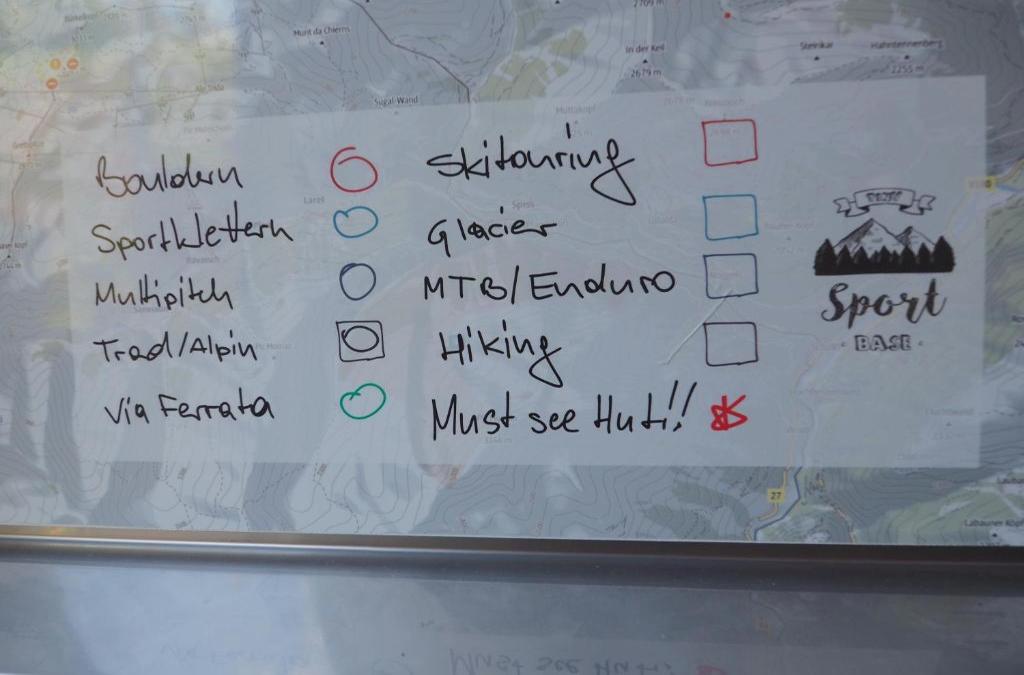 Munt da Chierns
Sugal-Wand
In der Keil
2679 m
2709 m
Steinkar
Hahntennenberg
2255 m
Bouldern
Sportklettern
Multipitch
Trad/Alpin
Via Ferrata
Skitouring
Glacier
MTB/Enduro
Hiking
Must see Hut!!
Sport
BASE
27
Labauner Köpf